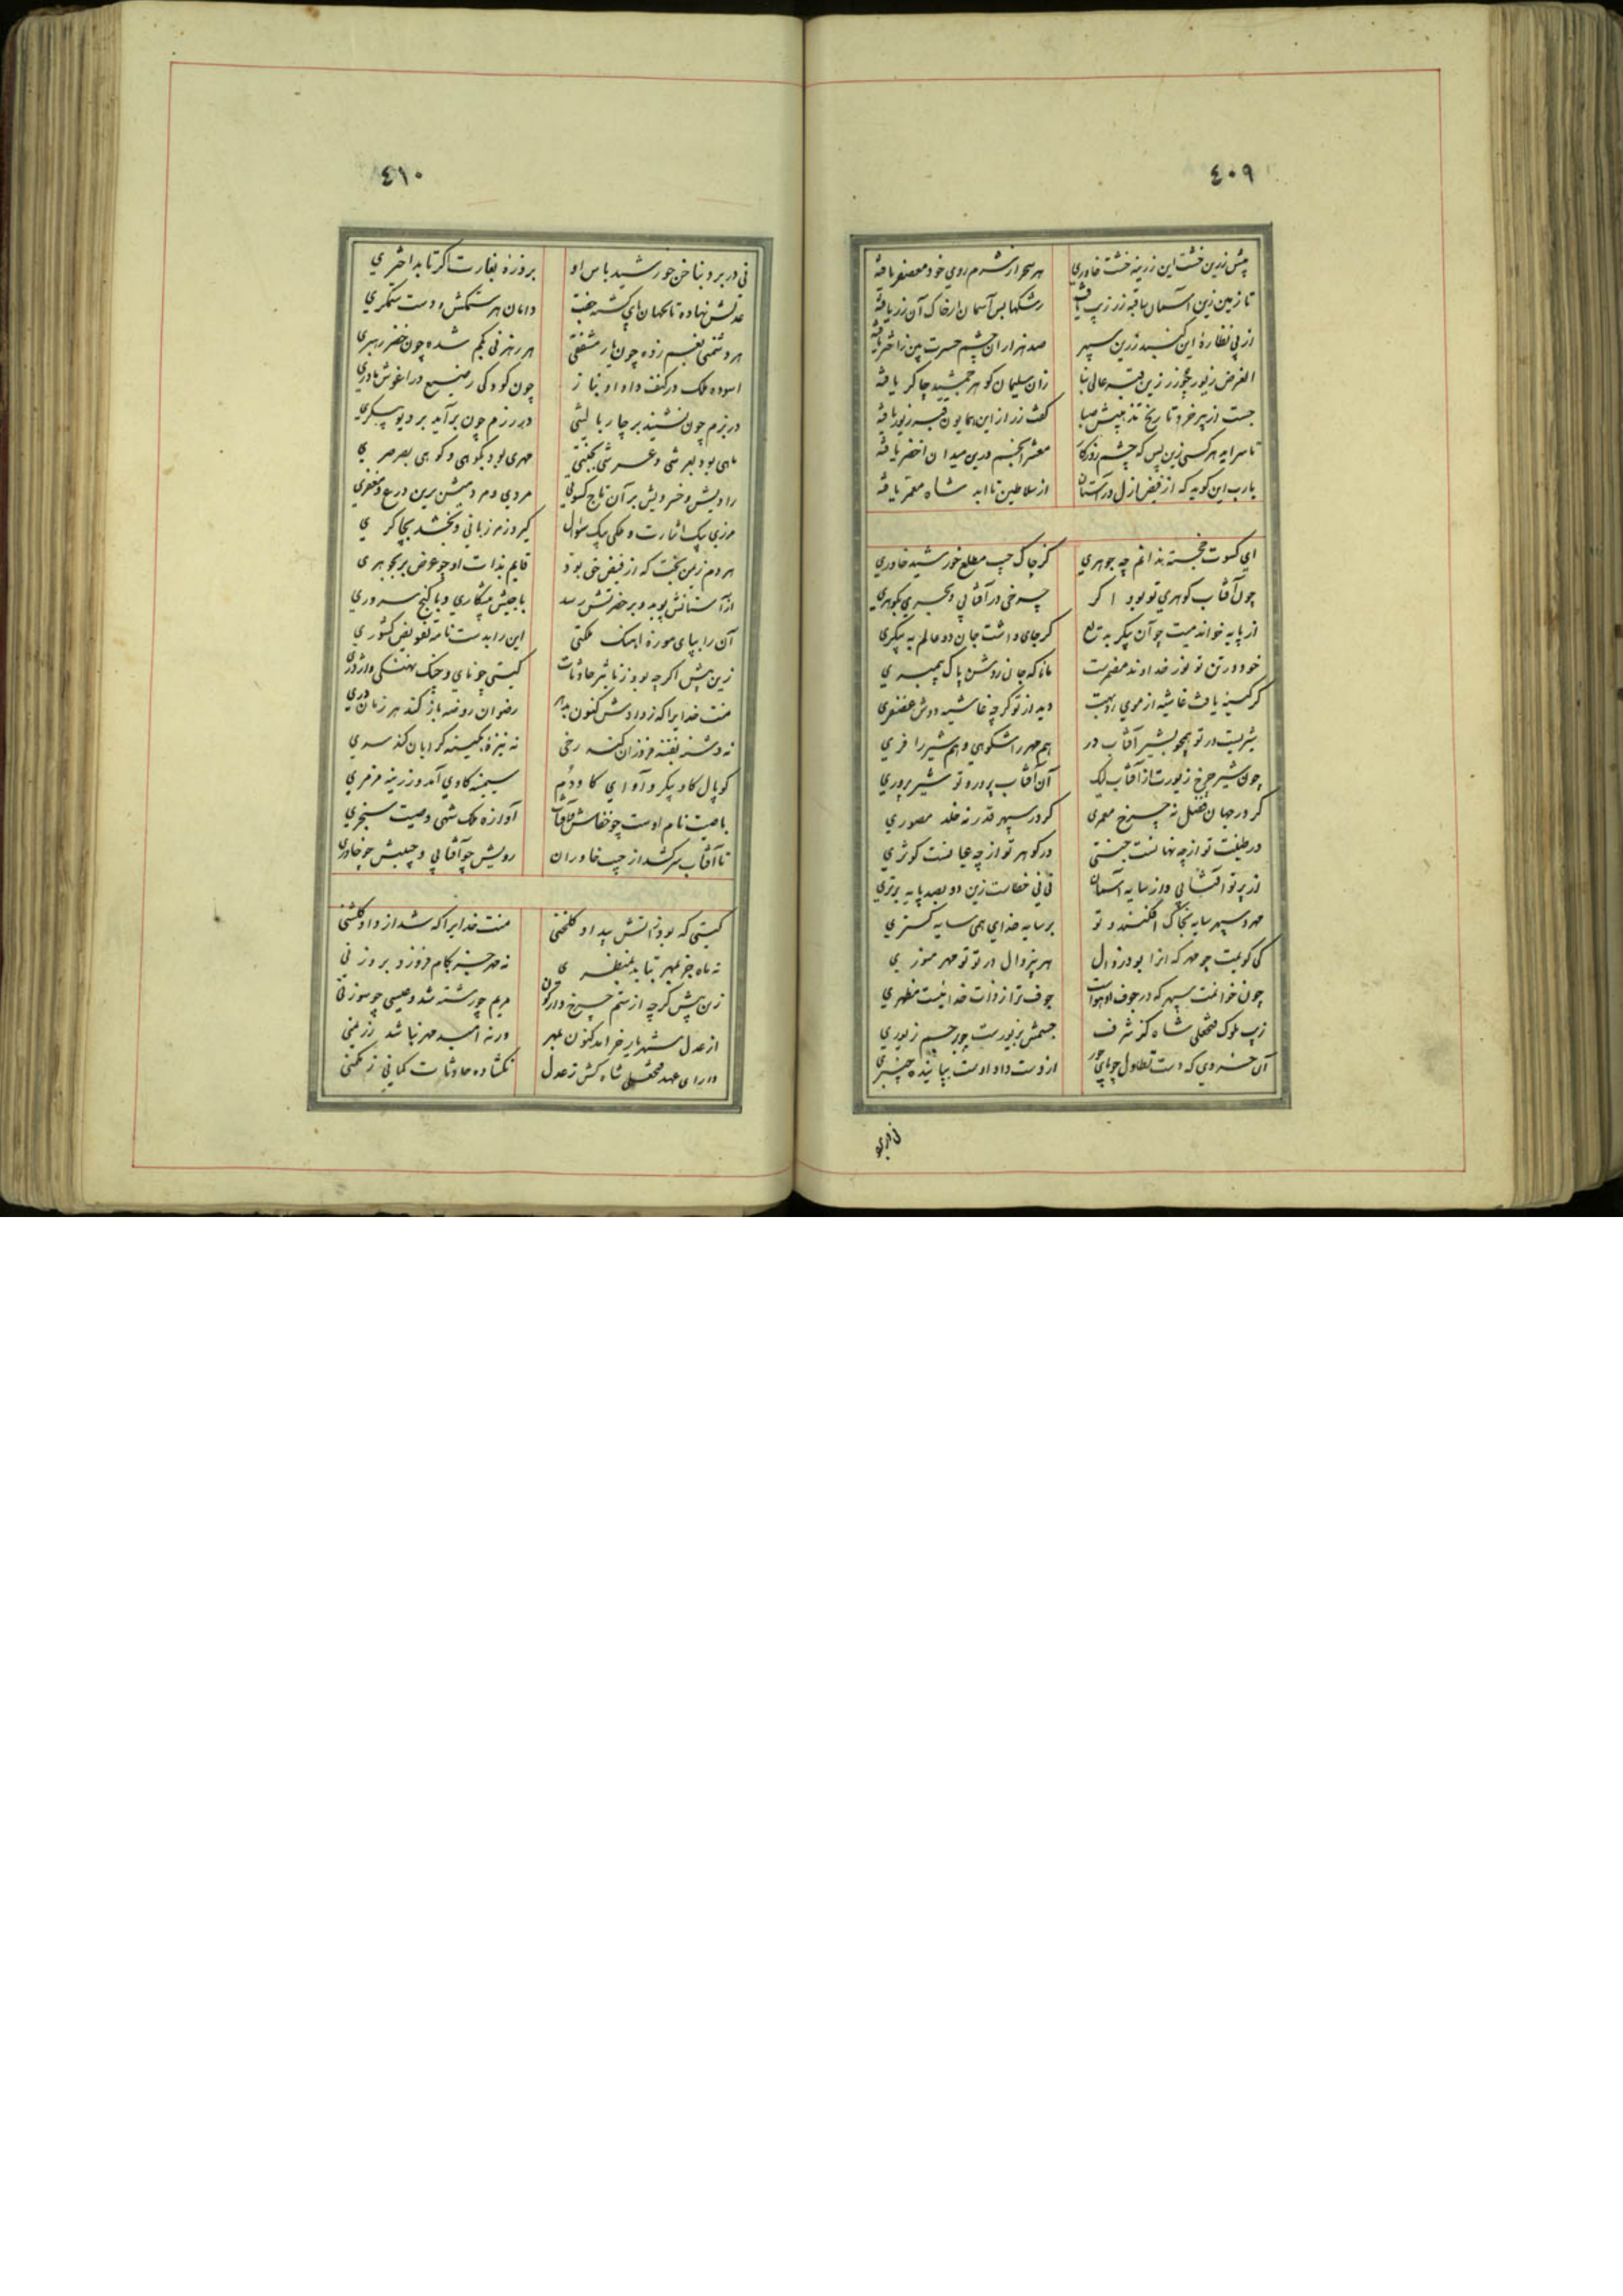 ٤٠٩
پیش زرین خشت این زرینه خشت خاوری هر سحر از شرم روی خود معصفر یافته
تا زمین زین آسمان سا قبه زر زیب یافت رشکها بس آسمان از خاک آن زر یافته
از پی نظارهٔ این گنبد زرین سپهر صد هزاران چشم حسرت بین ز اختر یافته
الغرض زیور چو زر زین قبه عالی بنا زان سلیمان کو هر جمشید چاکر یافته
جست از پیر خرد تاریخ پیش صبا گفت زر از این همایون قبه زیور یافته
تا سراید هر کسی زین پس که چشم روزگار معشر انجم درین میدان اخضر یافته
یارب این گوید که از فیض ازل در آستان از سلاطین تا ابد شاه معمر یافته
ای کسوت خجسته ندانم چه جوهری کز چاک جیب مطلع خورشید خاوری
چون آفتاب گوهری تو بود اگر چرخی در آفتابی و بحری بگوهری
از پایه خواندمیت چو آن پیکر بدیع گر جای داشت جان دو عالم به پیکری
خود در تن تو نور خداوند مضمرست مانا که جان روشن پاک پیمبری
گر کسینه یافت غاشیه از موی روبهت دید از تو گرچه غاشیه دوش غضنفری
شیریت در تو همچو بشیر آفتاب در هم مهر را شکوهی و هم شیر را فری
چون شیر چرخ زیورت از آفتاب لیک آن آفتاب پرور و تو شیر پروری
گر در جهان فضل نه چرخ معمری گر در سپهر قدر نه خلد مصوری
در طینت تو از چه نهانست جنتی در گوهر تو از چه عیانست کوثری
از پرتو آفتابی و از سایه آسمان نی نی خطاست زین دو بصد پایه برتری
مهر و سپهر سایه بخاک افکنند و تو بر سایه خدای همی سایه گستری
کی گویمت چو مهر که انرا بود زوال مهر بیزوال در تو تو مهر منوری
چون خوانمت سپهر که در جوف او هواست جوف ترا ز ذات خدائیست مظهری
زیب ملوک فتحعلی شاه کز شرف جسمش بزیورست چو بر جسم زیوری
آن خسروی که دست تطاول چو پای جور از دست داد اوست بپاینده چنبری
٤١٠
نی در برد بناخن خورشید باس او بر ذرهٔ بغارت اگر تابد اختری
عدلش نهاده تا بجهان پای گشته جفت دامان هر ستمکش و دست ستمگری
هر دشمنی بغم زده چون یار مشفقی هر رهزنی بگم شده چون خضر رهبری
آسوده ملک در کنف داد او بناز چون کودکی رضیع در آغوش مادری
در بزم چون نشیند بر چار بالشی در رزم چون برآید بر دیو پیکری
ماهی بود بعرشی و عرشی بجنتی مهری بود بکوهی و کوهی بصرصری
رادیش و خسرویش بر آن تاج کسوتی مردی و مردمیش برین درع و مغفری
مرزی بیک اشارت و ملکی بیک سؤال گیرد ز مرزبانی و بخشد بچاکری
هر دم زمین بخت که از فیض حی بود قایم بذات او چو عرض بر بجوهری
از آستانش پوید و بر حضرتش رسد با جیش بیشکاری و با گنج سروری
آن را بپای موزه آهنگ ملکتی این را بدست نامه تفویض کشوری
زین پیش اگرچه بود ز تاثیر حادثات گیتی چو نای و چنگ نهنگی و اژدری
منت خدایرا که ز دادش کنون بدهر رضوان روضه باز کند هر زمان دری
نه دشنه بفتنه فروزان کند رخی نه نیزهٔ بکینه گرایان کند سری
گوپال گاو پیکر و آوای گاودم سیمینه گاوی آمد و زرینه مزمری
با صیت نام اوست چو خفاش و آفتاب آوازه ملک شهی و صیت سنجری
تا آفتاب سر کشد از جیب خاوران رویش چو آفتابی و جیبش چو خاوری
گیتی که بود ز آتش بیداد گلخنی منت خدایرا که شد از داد گلشنی
نه ماه جز بمهر بتابد بمنظری نه مهر جز بکام فروزد بروزنی
زین پیش گرچه از ستم چرخ واژگون مریم چو رشته شد و عیسی چو سوزنی
از عدل شهریار خرامد کنون بمهر ورنه امید مهر نباشد ز ریمنی
دارای عهد فتحعلی شاه کش ز عدل نگشاده حادثات کمانی ز مکمنی